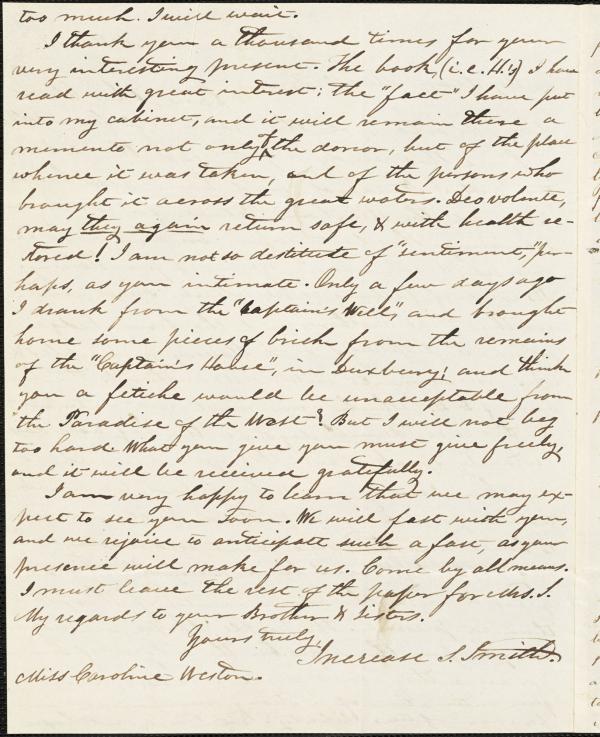 too much. I will wait.
I thank you a thousand times for your
very interesting present. The book, (i.e. H.'s) I have
read with great interest; the "fact" I have put
into my cabinet, and it will remain there a
memento not only of the donor, but of the place
whence it was taken, and of the persons who
brought it across the great waters. Deo volente,
may they again return safe, & with health re-
stored! I am not so destitute of "sentiment," per-
haps, as you intimate. Only a few days ago
I drank from the "Captain's Well", and brought
home some pieces of brick from the remains
of the "Captain's House", in Duxbury; and think
you a fetiche would be unacceptable from
the Paradise of the West? But I will not beg
too hard. What you give you must give freely,
and it will be received gratefully.
I am very happy to learn that we may ex-
pect to see you soon. We will fast with you,
and we rejoice to anticipate such a fast, as your
presence will make for us. Come by all means.
I must leave the rest of the paper for Mrs. S.
My regards to your Brother & sisters.
Yours truly,
Increase S. Smith.
Miss Caroline Weston.